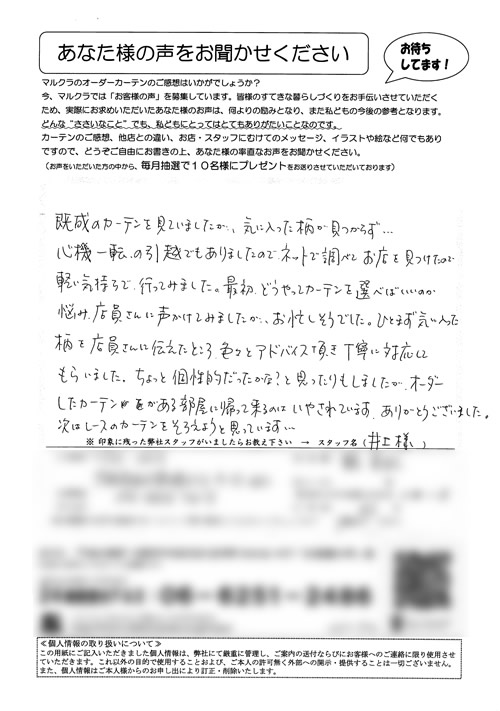 あなた様の声をお聞かせください
お待ち
してます!
マルクラのオーダーカーテンのご感想はいかがでしょうか?
今、マルクラでは「お客様の声」を募集しています。皆様のすてきな暮らしづくりをお手伝いさせていただく
ため、実際にお求めいただいたあなた様のお声は、何よりの励みとなり、また私どもの今後の参考となります。
どんな“ささいなこと”でも、私どもにとってはとてもありがたいことなのです。
カーテンのご感想、他店との違い、お店・スタッフにむけてのメッセージ、イラストや絵など何でもあり
ですので、どうぞご自由にお書きの上、あなた様の率直なお声をお聞かせください。
(お声をいただいた方の中から、毎月抽選で10名様にプレゼントをお送りさせていただいております)
既成のカーテンを見ていましたが、気に入った柄が見つからず…
心機一転の引越でもありましたので、ネットで調べてお店を見つけたので
軽い気持ちで、行ってみました。最初、どうやってカーテンを選べばいいのか
悩み、店員さんに声かけてみましたが、お忙しそうでした。ひとまず気に入った
柄を店員さんに伝えたところ、色々とアドバイス頂き丁寧に対応して
もらいました。ちょっと個性的だったかな?と思ったりもしましたが、オーダー
したカーテンがある部屋に帰って来るのはいやされています。ありがとうございました。
次はレースのカーテンをそろえようと思っています…
※ 印象に残った弊社スタッフがいましたらお教え下さい → スタッフ名( 井上様 )
06-6251-2486
≪個人情報の取り扱いについて≫
この用紙にご記入いただきました個人情報は、弊社にて厳重に管理し、ご案内の送付ならびにお客様へのご連絡に限り使用させ
ていただきます。これ以外の目的で使用することおよび、ご本人の許可無く外部への開示・提供することは一切ございません。
また、個人情報はご本人様からのお申し出により訂正・削除いたします。